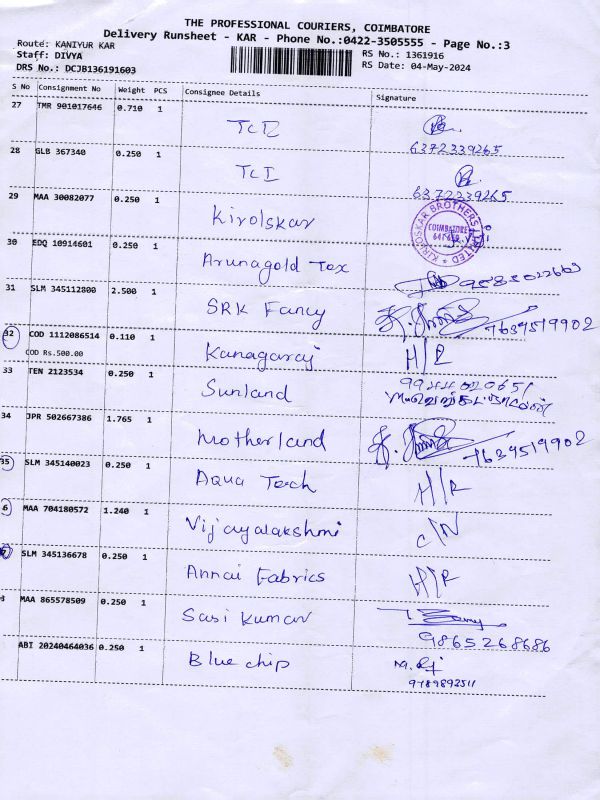 THE PROFESSIONAL COURIERS, COIMBATORE
Delivery Runsheet - KAR - Phone No.:0422-3505555 - Page No.:3
Route: KANIYUR KAR
RS No.: 1361916
Staff: DIVYA
RS Date: 04-May-2024
DRS No.: DCJB136191603
S No Consignment No Weight PCS Consignee Details Signature
27 TMR 901017646 0.710 1
6372339265
28 GLB 367340 0.250 1 TCI
6372339265
29 MAA 30082077 0.250 1 Kirolskar
KIRLOSKAR BROTHERS LIMITED
COIMBATORE
30 EDQ 10914601 0.250 1 Arunagold Tex
31 SLM 345112800 2.500 1 SRK Fancy
7639519902
32 COD 1112086514 0.110 1 Kanagaraj H/R
COD Rs.500.00
33 TEN 2123534 0.250 1 Sunland
34 JPR 502667386 1.765 1 Motherland
7639519902
35 SLM 345140023 0.250 1 Aqua Tech H/R
6 MAA 704180572 1.240 1 Vijayalakshmi C/N
SLM 345136678 0.250 1 Annai Fabrics H/R
MAA 865578509 0.250 1 Sasi Kumar
9865268686
ABI 20240464036 0.250 1 Blue chip
9789892511